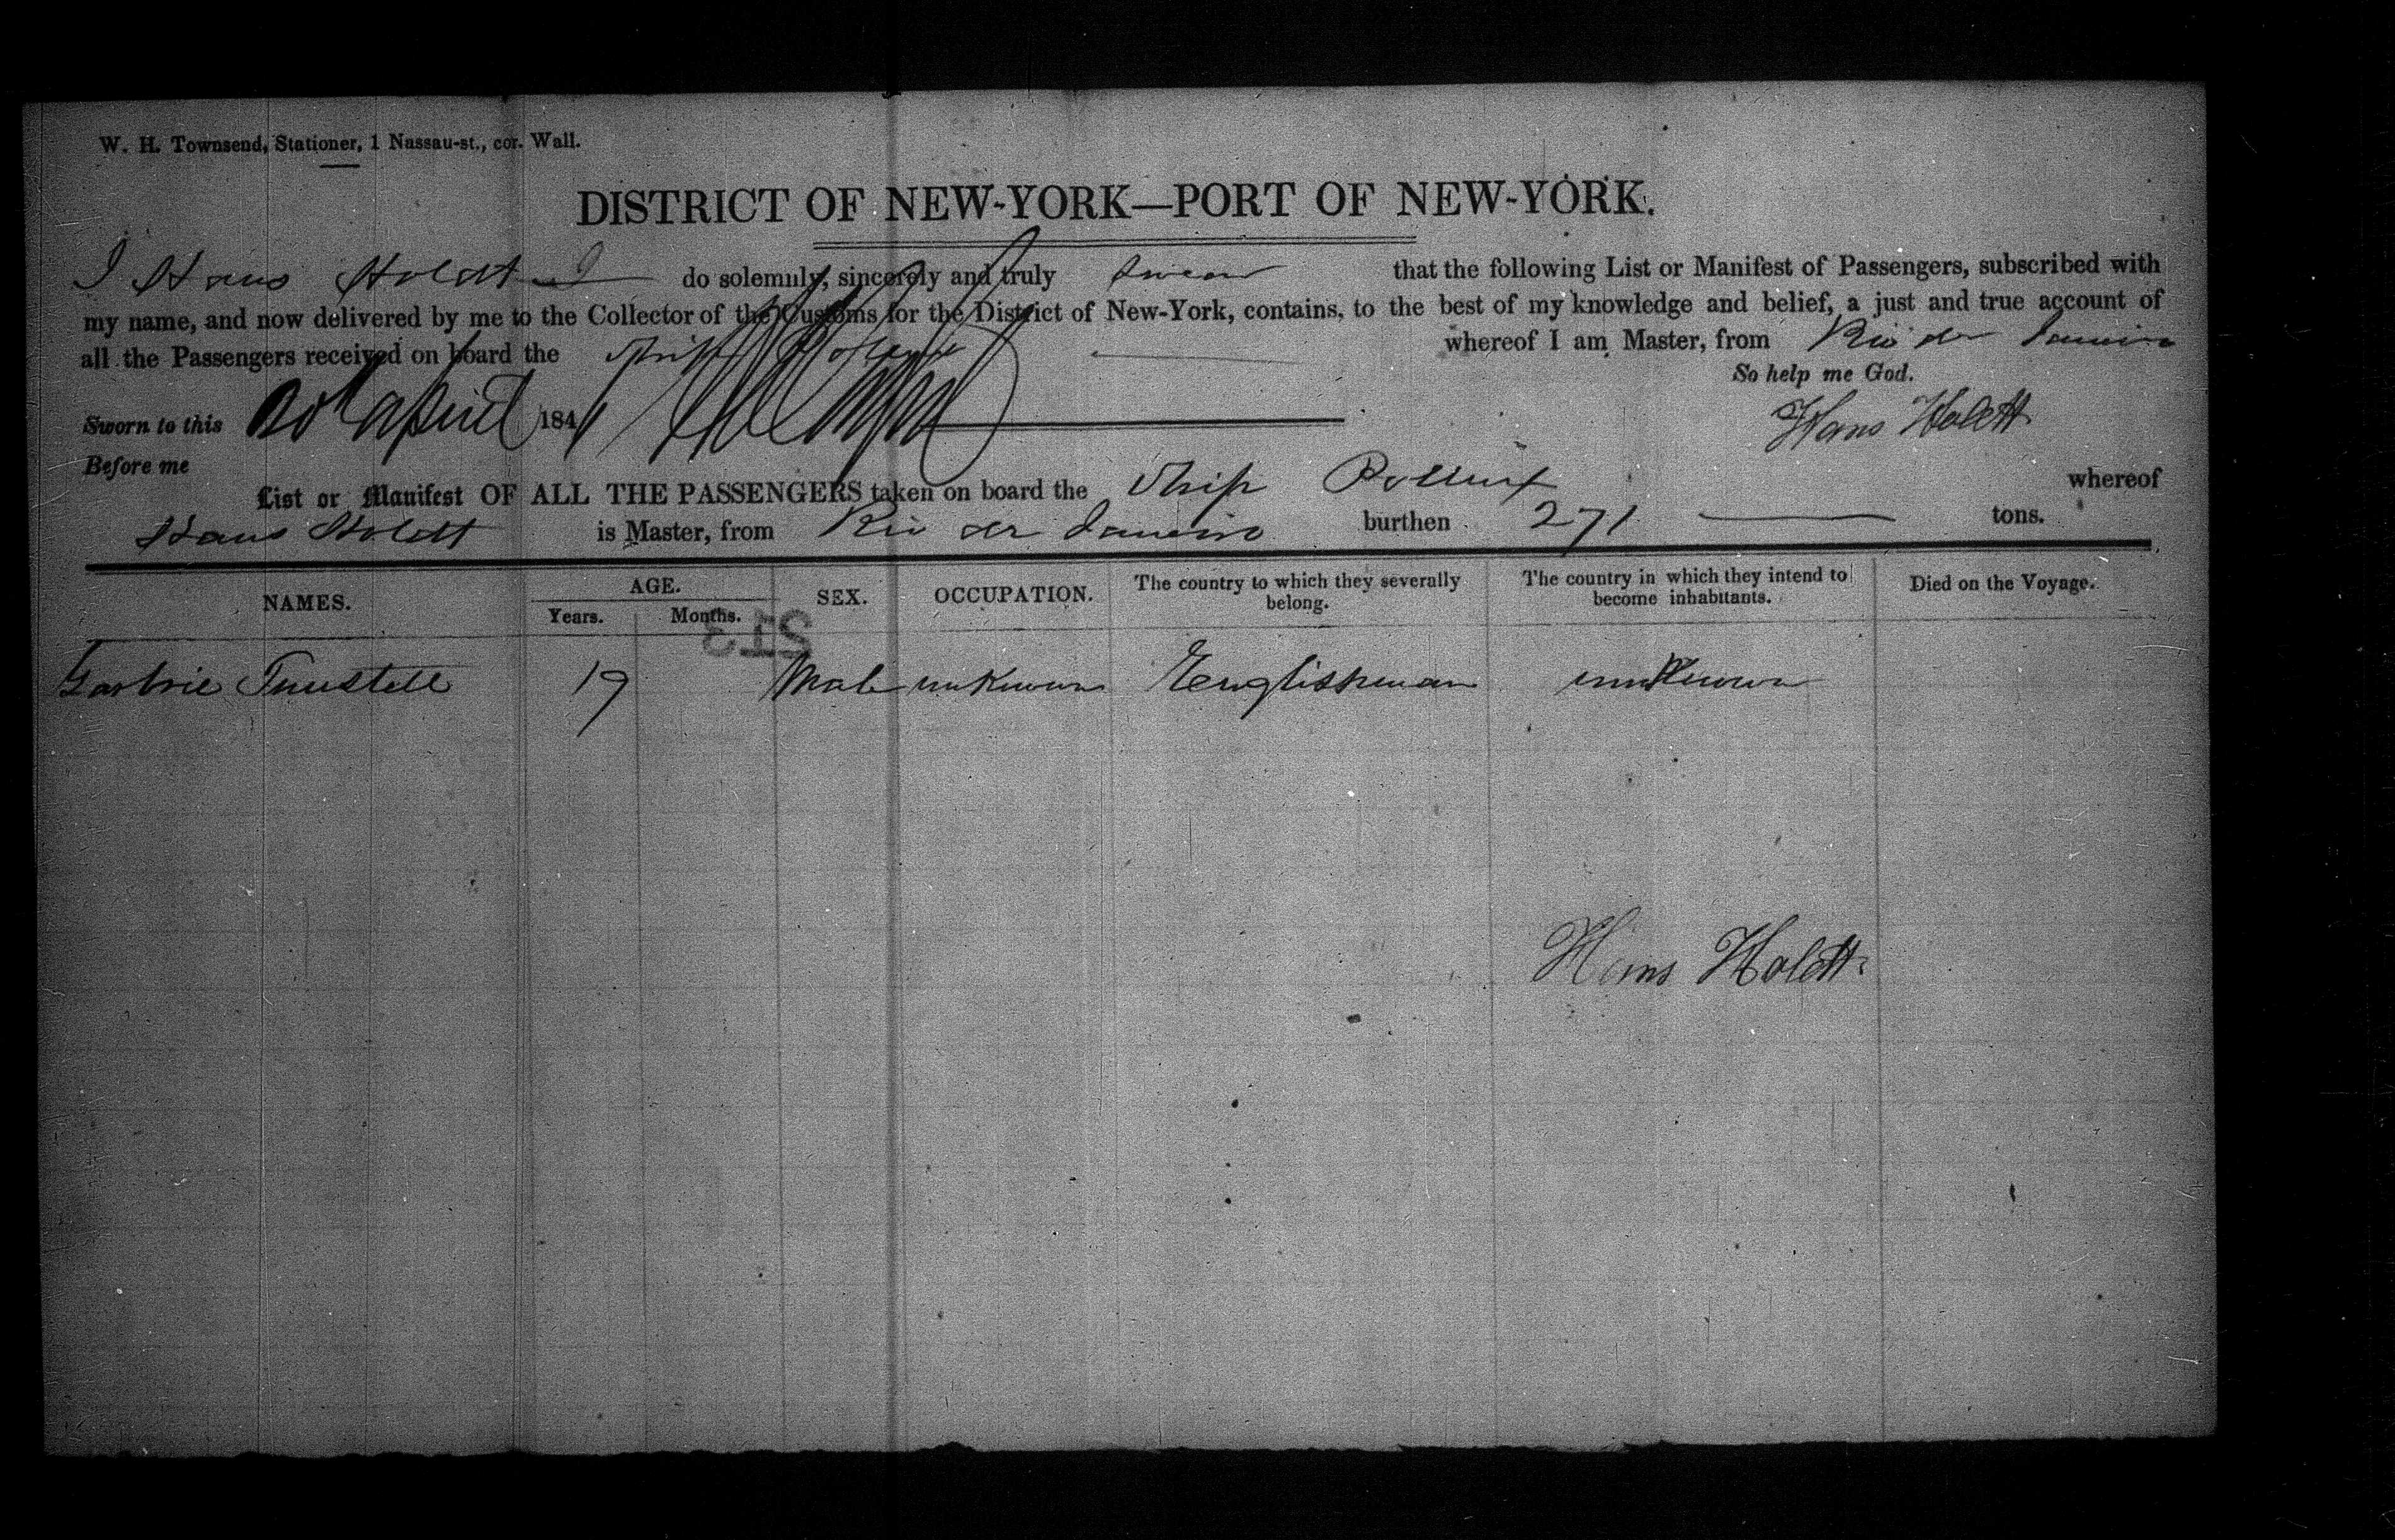 W. H. Townsend, Stationer, 1 Nassau-st., cor. Wall.
DISTRICT OF NEW-YORK—PORT OF NEW-YORK.
I Hans Holdt do solemnly, sincerely and truly swear that the following List or Manifest of Passengers, subscribed with
my name, and now delivered by me to the Collector of the Customs for the District of New-York, contains, to the best of my knowledge and belief, a just and true account of
all the Passengers received on board the Ship whereof I am Master, from Rio der Janeiro
So help me God.
Sworn to this April 184
Hans Holdtt
Before me
List or Manifest OF ALL THE PASSENGERS taken on board the Ship Pollux whereof
Hans Holdt is Master, from Rio der Janeiro burthen 271 tons.
NAMES. AGE. SEX. OCCUPATION. The country to which they severally belong. The country in which they intend to become inhabitants. Died on the Voyage.
Years. Months.
19 Male unknown Englishman unknown
Hans Holdtt